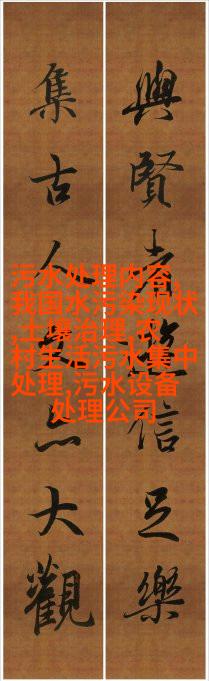 與賢者遊信足樂
集古人大觀
污水处理内容,
我国水污染现状
,土壤治理,农
村生活污水集中
处理,污水设备
处理公司